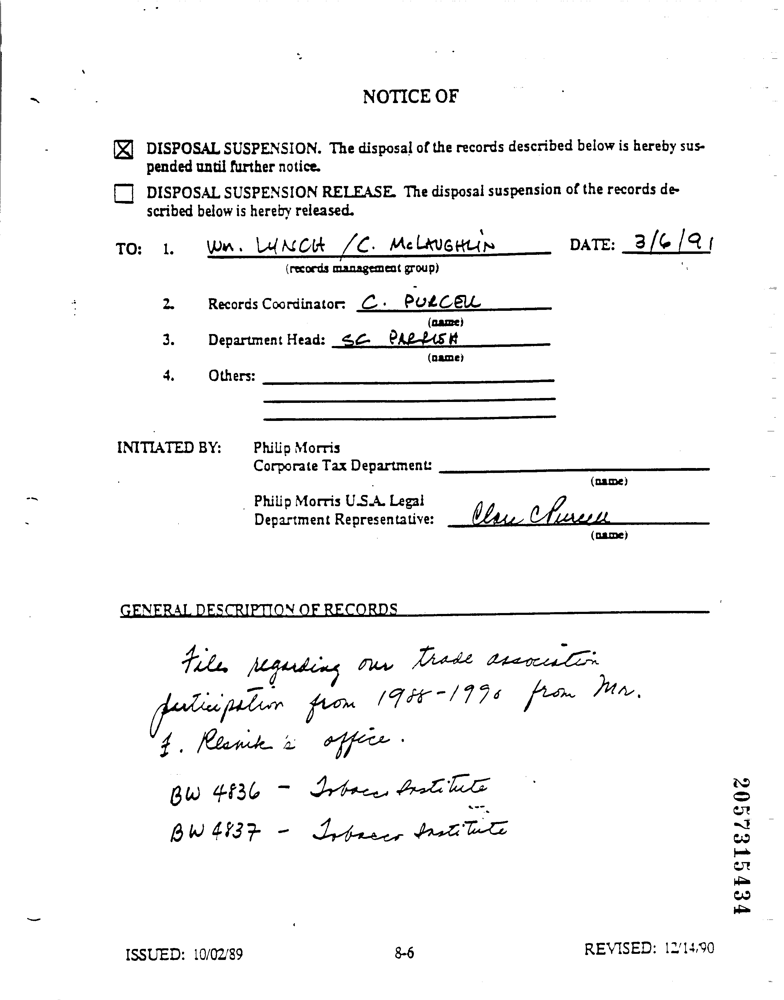 NOTICE OF
DISPOSAL SUSPENSION. The disposal of the records described below is hereby sus-
pended until further notice.
DISPOSAL SUSPENSION RELEASE. The disposal suspension of the records de-
scribed below is hereby released.
TO: 1. Wm. LYNCH / C. McLAUGHLIN DATE: 3/6/91
(records management group)
2. Records Coordinator: C. PURCELL
(name)
3. Department Head: SC PARRISH
(name)
4. Others:
INITIATED BY: Philip Morris
Corporate Tax Department:
(name)
Philip Morris U.S.A. Legal
Department Representative: Clare C Purcell
(name)
GENERAL DESCRIPTION OF RECORDS
Files regarding our trade association
participation from 1988-1990 from Mr.
F. Resnik's office.
BW 4836 - Tobacco Institute
BW 4837 - Tobacco Institute
2057315434
ISSUED: 10/02/89 8-6 REVISED: 12/14/90